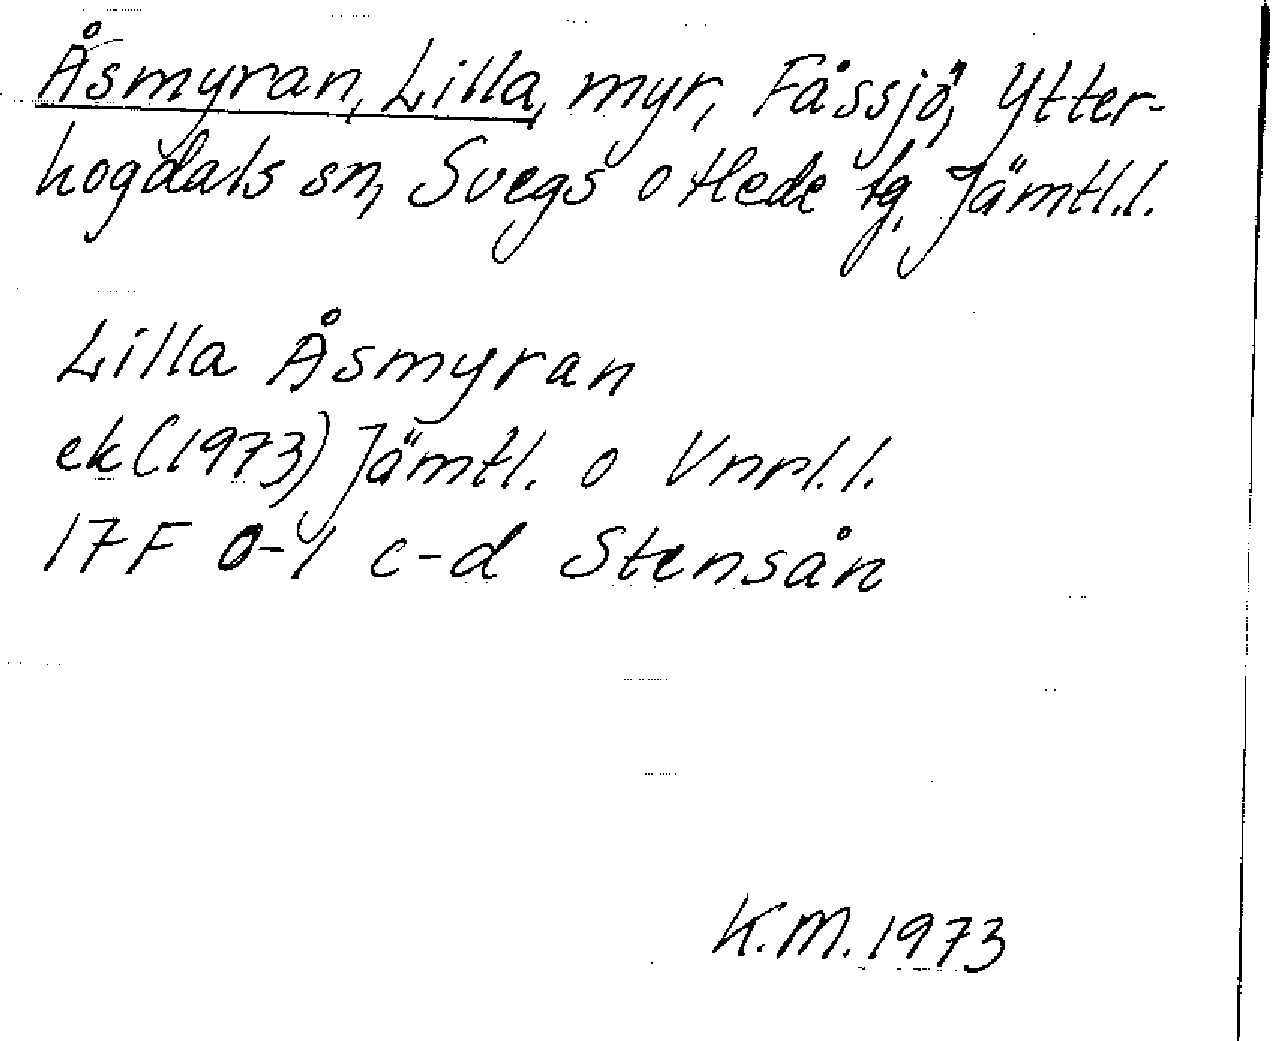 Åsmyran, Lilla, myr, Fåssjö, Ytter-
hogdals sn, Svegs o Hede tg, Jämtl.l.
Lilla Åsmyran
ek(1973) Jämtl. o Vnrl.l.
17F 0-1 c-d Stensån
K.M. 1973